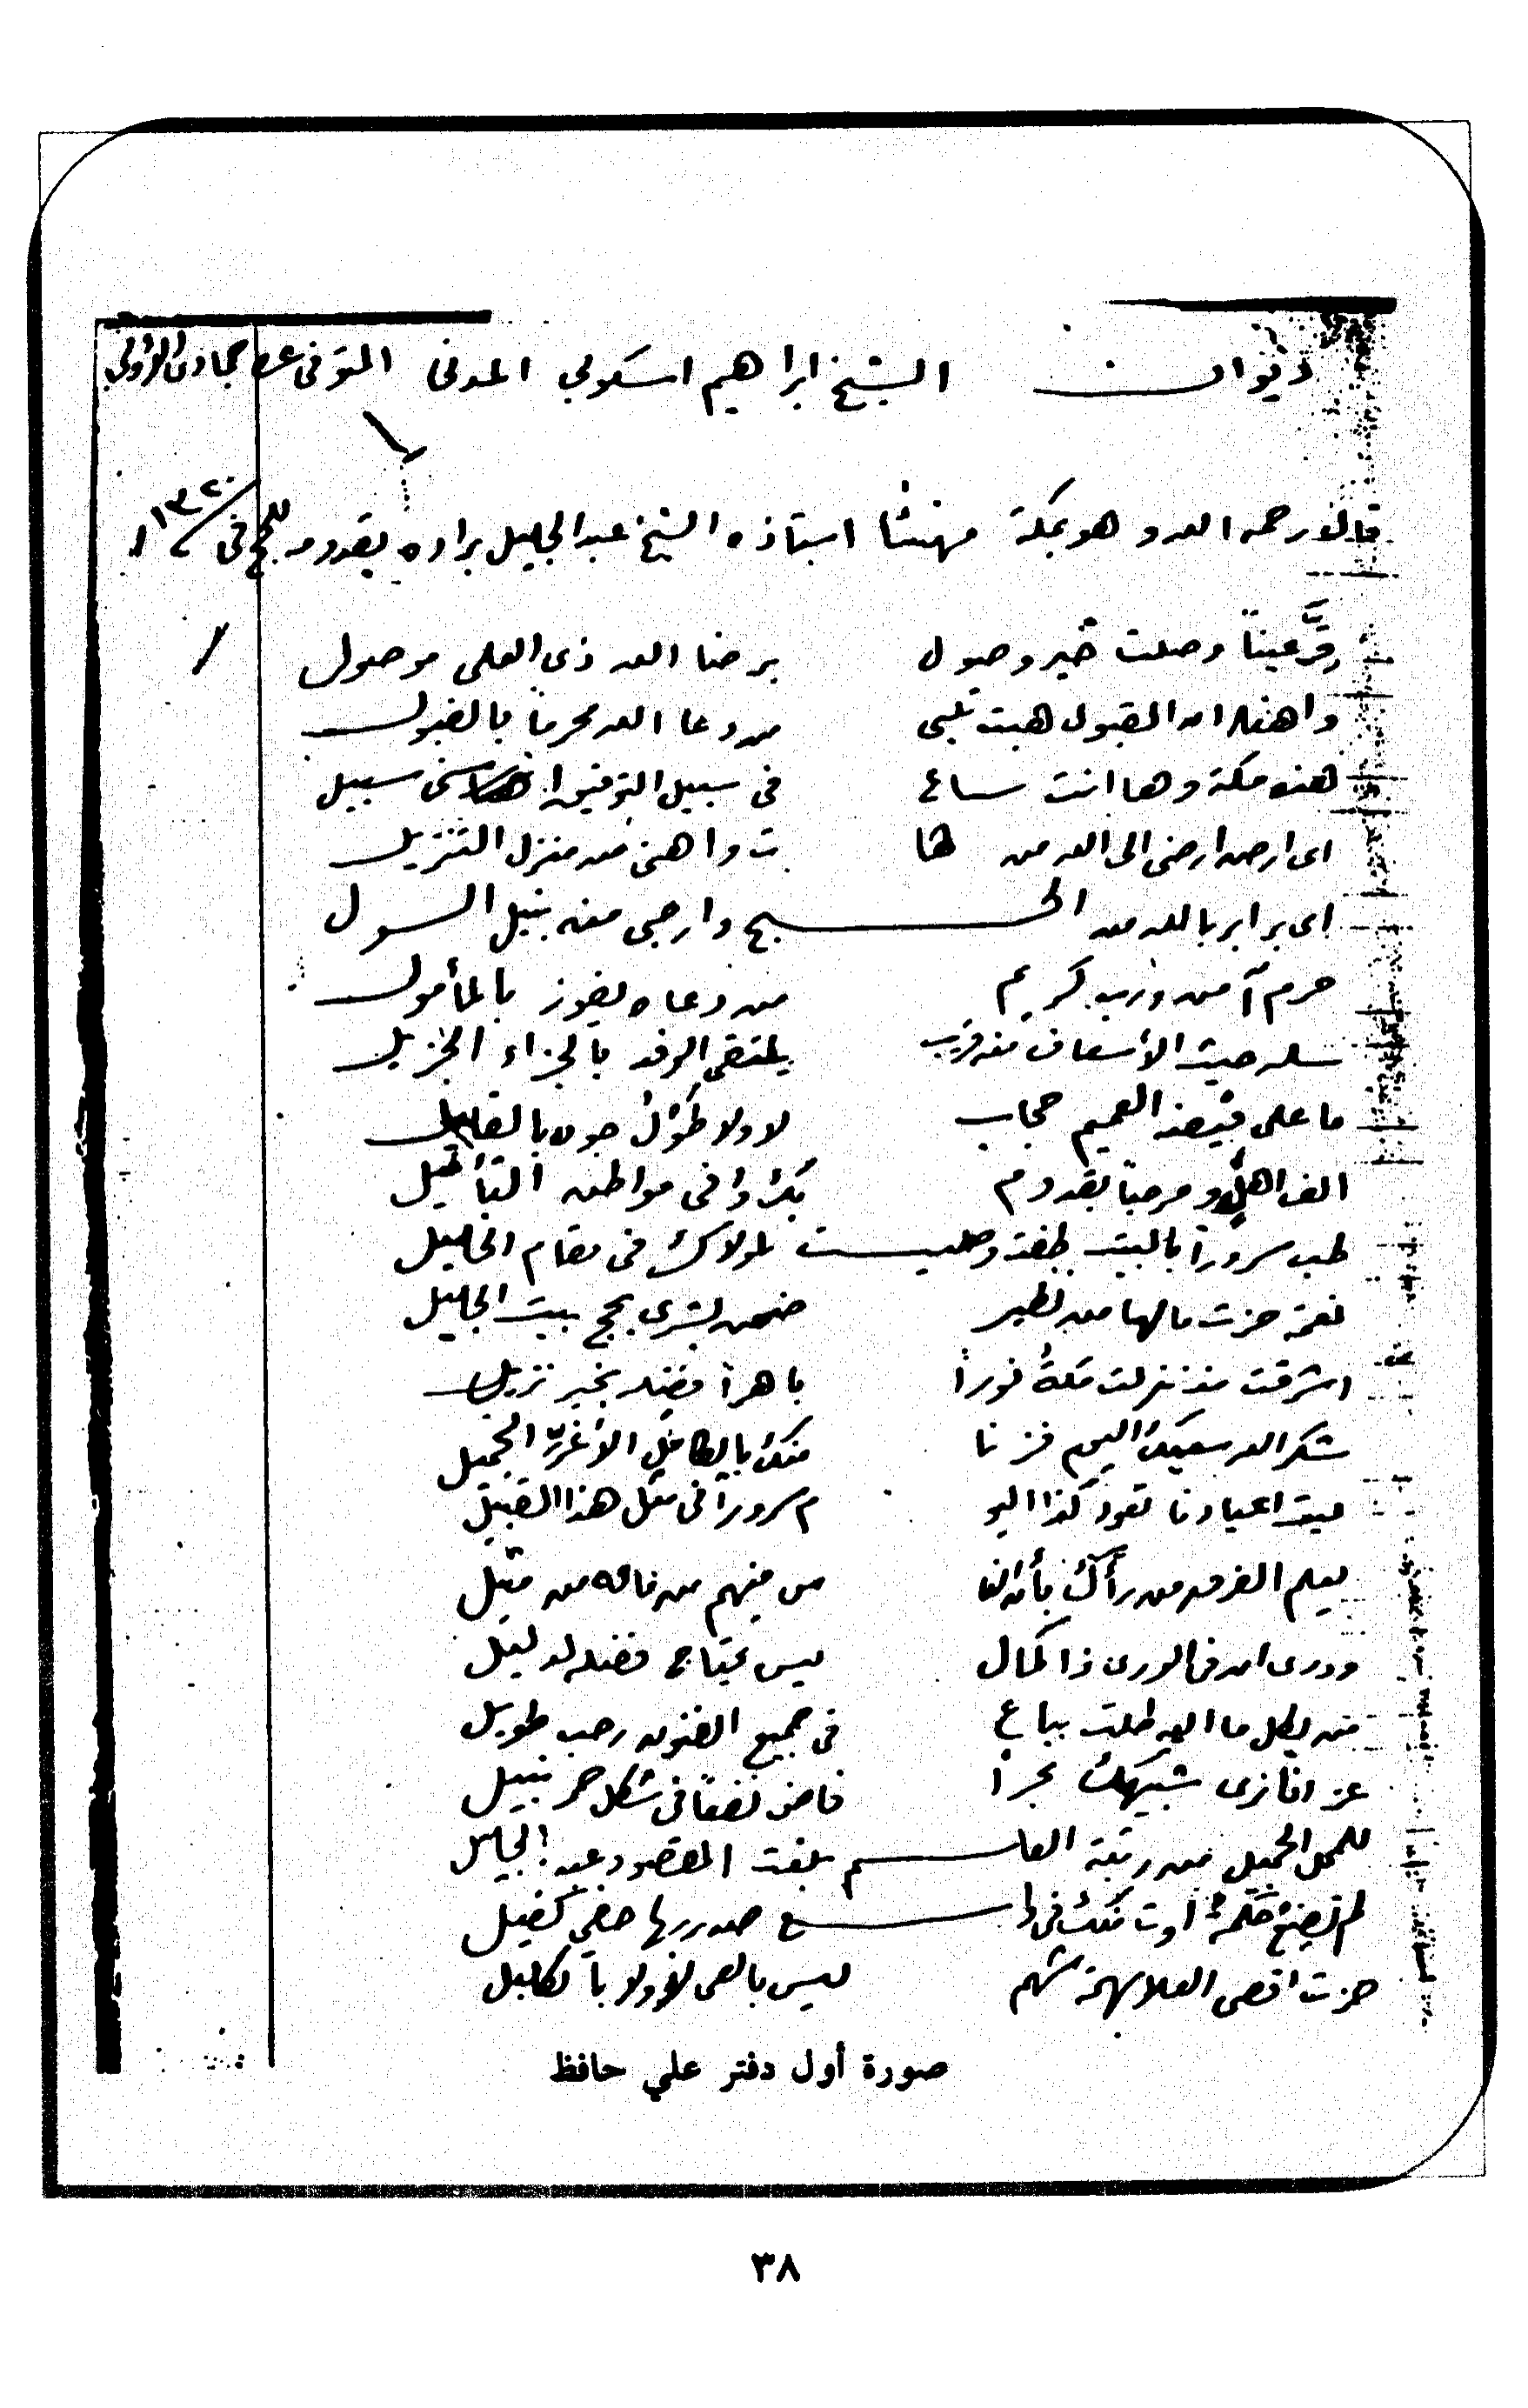 ديوان الشيخ ابراهيم اسكوبي المدني المتوفى
قال رحمه الله وهو بمكة مهنئا استاذه الشيخ عبد الجليل براده بقدومه للحج في ١٣٢٠
قر عيناً وصلت خير وصول برضا الله ذى العلى موصول
من دعا الله محرماً بالقبول
هذه مكة وها انت ساع فى سبيل التوفيق سبيل
اى ارض ارضى الى الله من ها ت واهنى من منزل التنزيل
اى بر ابر بالله من الحـ ـج وارجى منه بنيل السول
حرم آمن ورب كريم من دعاه يفوز بالمأمول
حيث الاسعاف منه قريب يلتقى الوفد بالجزاء الجزيل
ما على فيضه العميم حجاب لا ولا طَوْلُ جوده بالقليل
الف اهل ومرحباً بقدوم بك وافى مواطن التأهيل
طب سروراً بالبيت طفت وصليـ ـت لمولاك فى مقام الخليل
نعمة حزت مالها من نظير ضمن بشرى بحج بيت الجليل
اشرقت منذ نزلت مكةُ نوراً باهراً فضله بخير نزيل
شكر الله سعيك اليوم فزنا منك بالكامل الاغر الجميل
ليت اعيادنا تعود كذا اليو م سروراً فى مثل هذا القبيل
يعلم الفرد من رآك بأن النا س فيهم من فاقه من مثيل
ودرى ان فى الورى ذا كمال ليس يحتاج فضله لدليل
من لكل ما اليه طلت بباع فى جميع الفنون رحب طويل
عز انا نرى شبيهك بحراً فاض نفعاً فى شكل حبر نبيل
للمحل الجميل من رتبة العلـ ـم بلغت المقصود عبد الجليل
لم تضع حكمةٌ اوت منك فى وا سع صدر بها حفى كفيل
حزت اقصى العلا بهمة شهم ليس بالعى لا ولا بالكليل
صورة أول دفتر علي حافظ
٣٨